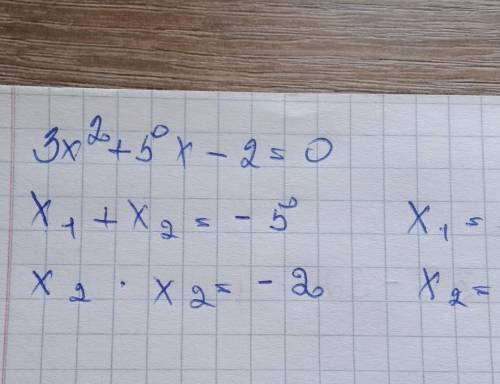 3x² + 5x - 2 = 0
x₁ + x₂ = - 5 x₁ =
x₂ · x₂ = - 2 x₂ =